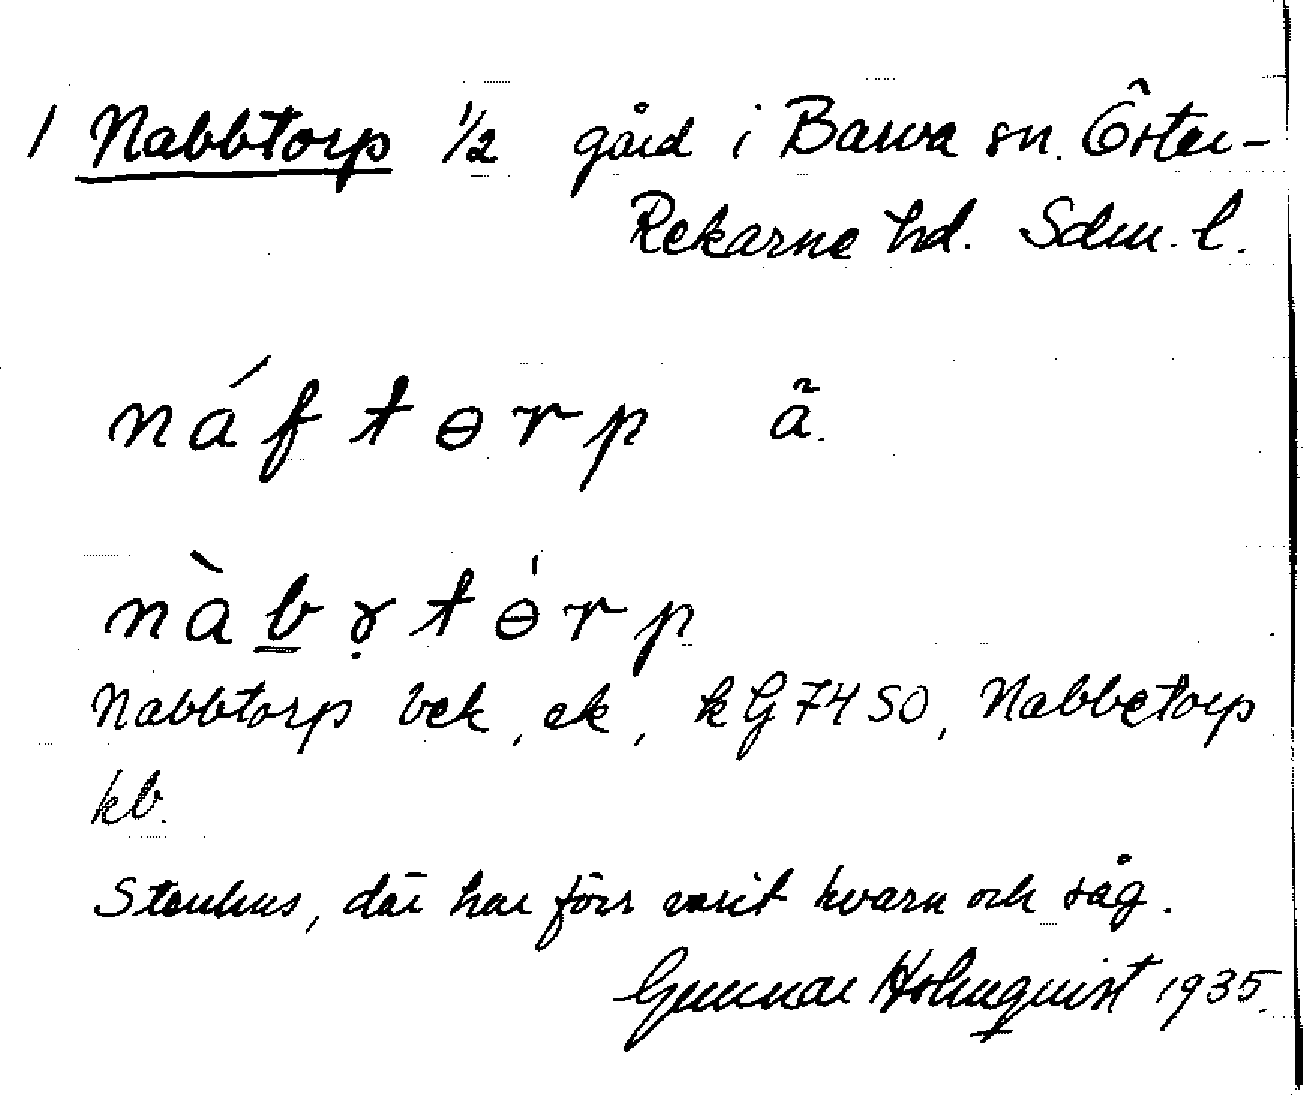 1 Nabbtorp 1/2 gård i Barva sn. Öster-
Rekarne hd. Sdm. l.
náftɵrp ã.
nàbɤ̣tɵ́rp
Nabbtorp bek, ek, kG 74 SO, Nabbetorp
kb.
Stenhus, där har förr varit kvarn och såg.
Gunnar Holmquist 1935.